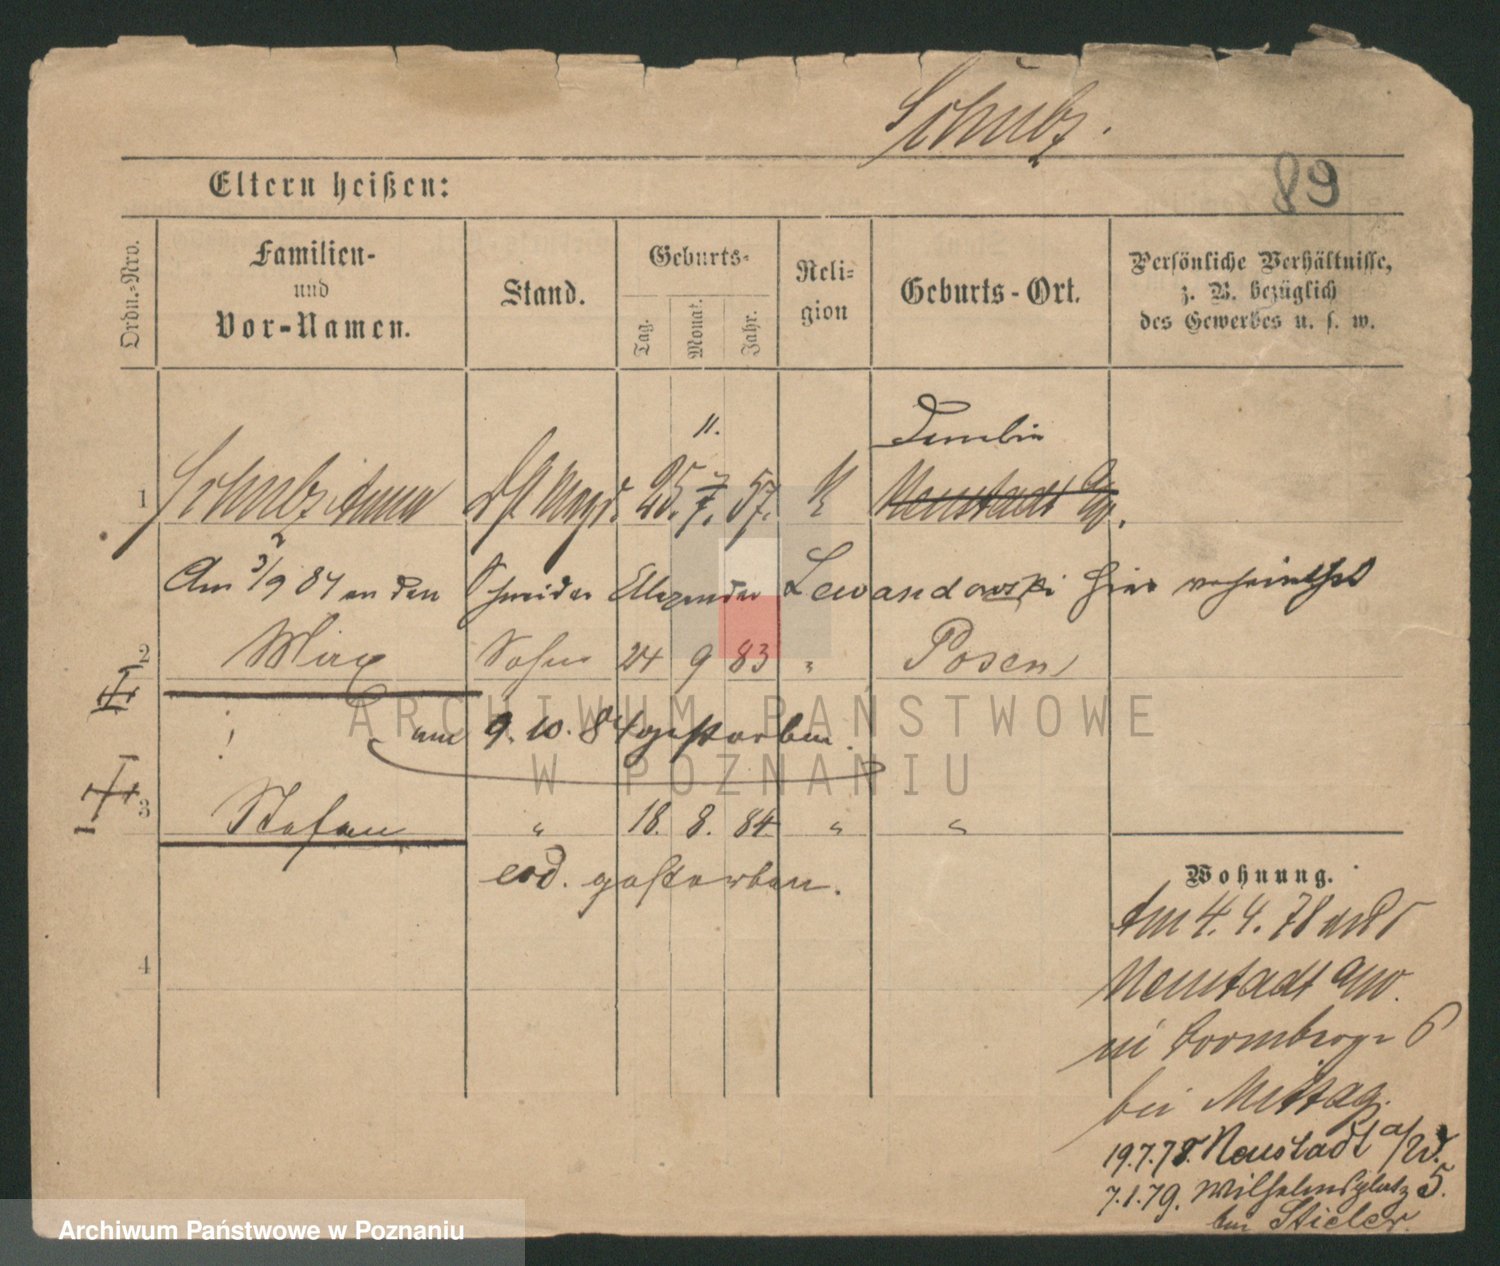 Schubz.
89
Eltern heißen:
Ordn.-Nro.
Familien-
und
Vor-Namen.
Stand.
Geburts-
Tag.
Monat.
Jahr.
Reli-
gion
Geburts-Ort.
Persönliche Verhältnisse,
z. B. bezüglich
des Gewerbes u. s. w.
11.
Dembin
1 Schubz Anna 25. 7. 57. K Neustadt
Am 3/9 84 an den Schneider Alexander Lewandowski hier verheirathet
2 Max Sohn 24 9 83 " Posen
I
am 9. 10. 84 gestorben.
3 Stefan " 18. 8. 84 " "
eod. gestorben.
Wohnung.
Am 4. 4. 78
4
Neustadt a/W.
6
bei Mittag.
19.7.78. Neustadt a/W.
7.1.79. Wilhelmsplatz 5.
bei Stieler.
ARCHIWUM PAŃSTWOWE
W POZNANIU
Archiwum Państwowe w Poznaniu